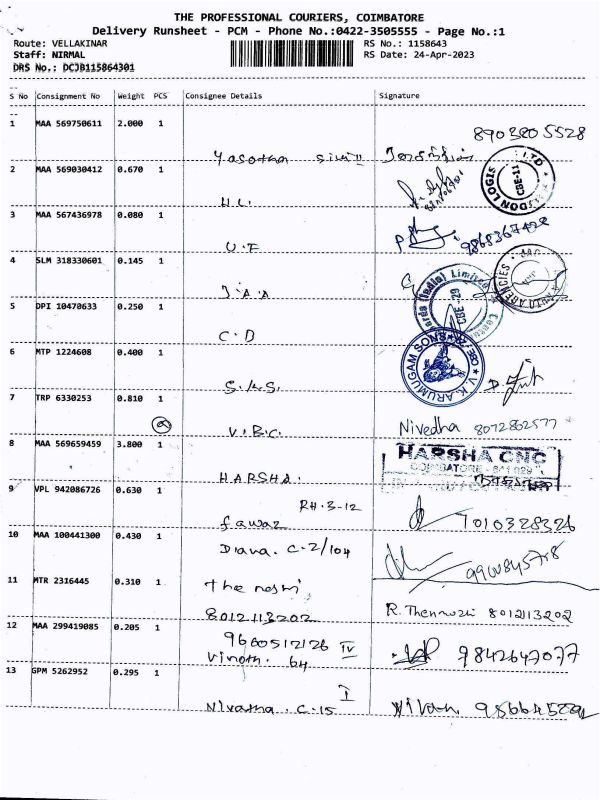 THE PROFESSIONAL COURIERS, COIMBATORE
Delivery Runsheet - PCM - Phone No.:0422-3505555 - Page No.:1
Route: VELLAKINAR
RS No.: 1158643
Staff: NIRMAL
RS Date: 24-Apr-2023
DRS No.: DCJB115864301
S No Consignment No Weight PCS Consignee Details Signature
1 MAA 569750611 2.000 1
8903805528
Yasotha
2 MAA 569030412 0.670 1
LTD
CBE-11
LOGIS
H.C.
3 MAA 567436978 0.080 1
U.F
4 SLM 318330601 0.145 1
AUTO AGENCIES
J.A.A
(India) Limited
CBE-29
5 DPI 10470633 0.250 1
C.D
6 MTP 1224608 0.400 1
V.K.ARUMUGAM SONS
S.K.S.
7 TRP 6330253 0.810 1
V.B.C. Nivedha 8072862577
8 MAA 569659459 3.800 1
HARSHA CNC
COIMBATORE
HARSHA.
9 VPL 942086726 0.630 1
RH.3-12
fawaz 7010328326
10 MAA 100441300 0.430 1
Diana. C-2/104
11 MTR 2316445 0.310 1
8012113202 R. Thenmozhi 8012113202
12 MAA 299419085 0.205 1
9660512126 IV
Vinoth. 64 9842647077
13 GPM 5262952 0.295 1
I
Nivatha. C-15